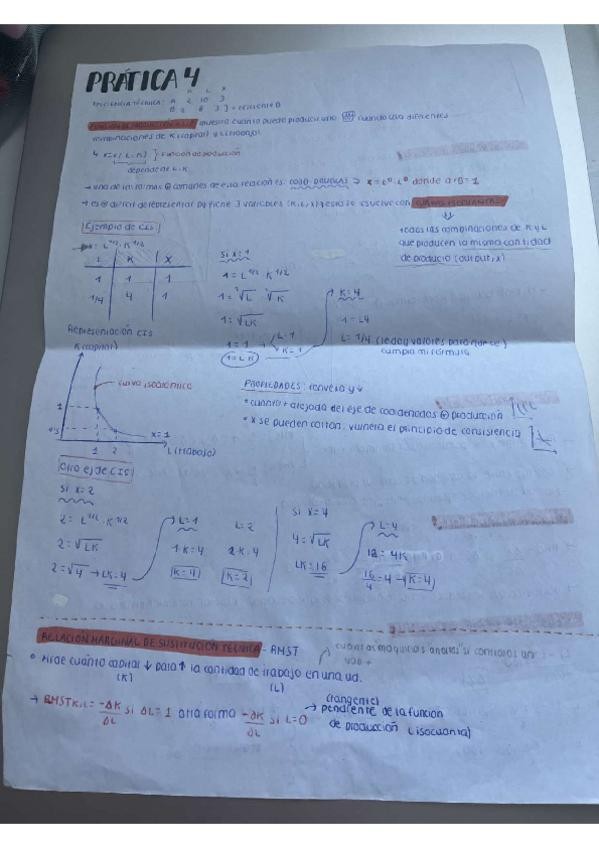 PRÁTICA 4
K L X
EFICIENCIA TÉCNICA: A 2 10 3
B 2 8 3 → eficiente B
muestra cuánto puede producir uno cuando usa diferentes
combinaciones de K (capital) y L (trabajo)
↳ X = f(L, K) } función de producción
depende de L, K
→ una de las formas + comunes de esta relación es: COBB-DOUGLAS ⇒ X = Lᵅ · Kᵝ donde α+β=1
→ es + difícil de representar pq tiene 3 variables (K, L, X) y esto se resuelve con
todas las combinaciones de K y L
que producen la misma cantidad
de producto (output, X)
Ejemplo de CIS
X = L^1/2 · K^1/2
L K X
1 1 1
1/4 4 1
Si X=1
1 = L^1/2 · K^1/2
1 = √L · √K
1 = √LK
1 = 1 → L=1
K=1
1 = L·K
K=4
1 = L4
L = 1/4 (le doy valores para que se
cumpla mi fórmula)
Representación CIS
K (capital)
curva isocuántica
1
0'5
1 2
X=1
L (trabajo)
PROPIEDADES: convexa y ↓
• cuanto + alejada del eje de coordenadas ⊕ producción
• X se pueden cortar: vulnera el principio de consistencia
Otro ej de CIS
Si X=2
2 = L^1/2 · K^1/2
2 = √LK
2 = √4 → LK=4
L=1
1·K=4
K=4
L=2
2·K=4
K=2
Si X=4
4 = √LK
LK=16
L=4
16 = 4K
16/4 = 4 → K=4
RELACIÓN MARGINAL DE SUSTITUCIÓN TÉCNICA - RMST
cuántas máquinas ahorras si contratas un
• Mide cuánto capital ↓ para ↑ la cantidad de trabajo en una ud.
(K) (L)
→ RMST K,L = -ΔK/ΔL si ΔL=1 otra forma -∂K/∂L si L=0 → (tangente)
pendiente de la función
de producción (isocuanta)